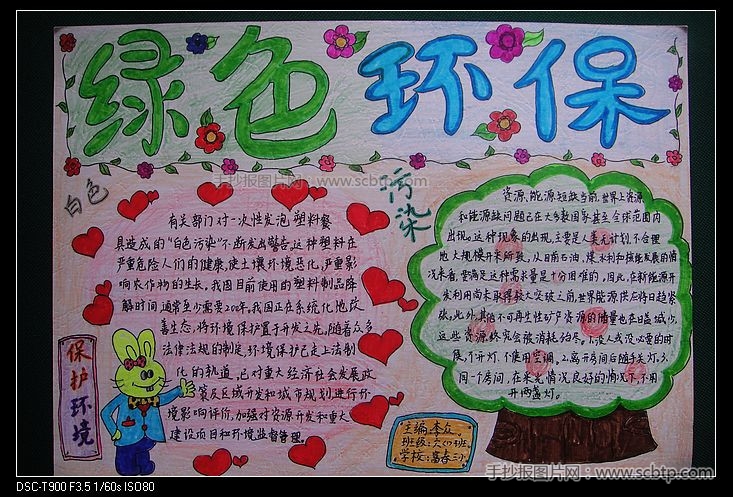 绿色环保
手抄报图片网:www.scbtp.com
白色
污染
有关部门对一次性发泡塑料餐
具造成的"白色污染"不断发出警告。这种塑料在
严重危险人们的健康,使土壤环境恶化,严重影
响农作物的生长,我国目前使用的塑料制品降
解时间通常至少需要200年。我国正在系统化地改
善生态,将环境保护置于开发之先。随着众多
法律法规的制定,环境保护已走上法制
化的轨道,已对重大经济社会发展政
策及区域开发和城市规划进行环
境影响评价,加强对资源开发和重大
建设项目和环境监督管理。
资源、能源短缺当前,世界上资源
和能源缺问题已在大多数国等甚至全球范围内
出现。这种现象的出现,主要是人类无计划、不合理
地大规模开采所致,从目前石油、煤、水利和核能发展的情
况来看,要满足这种需求量是十分困难的,因此,在新能源开
发利用尚未取得较大突破之前,世界能源供应将日趋紧
张。此外,其他不可再生性矿产资源的储量也在日益减少,
这些资源终究会被消耗殆尽。1.没人或没必要的时
候,不开灯、不使用空调。2.离开房间后随手关灯。3.
同一个房间,在采光情况良好的情况下,不用
开两盏灯。
保护环境
主编:李众
班级:六(4)班
学校:高春三小
手抄报图片网:www.scbtp.com
DSC-T900 F3.5 1/60s ISO80